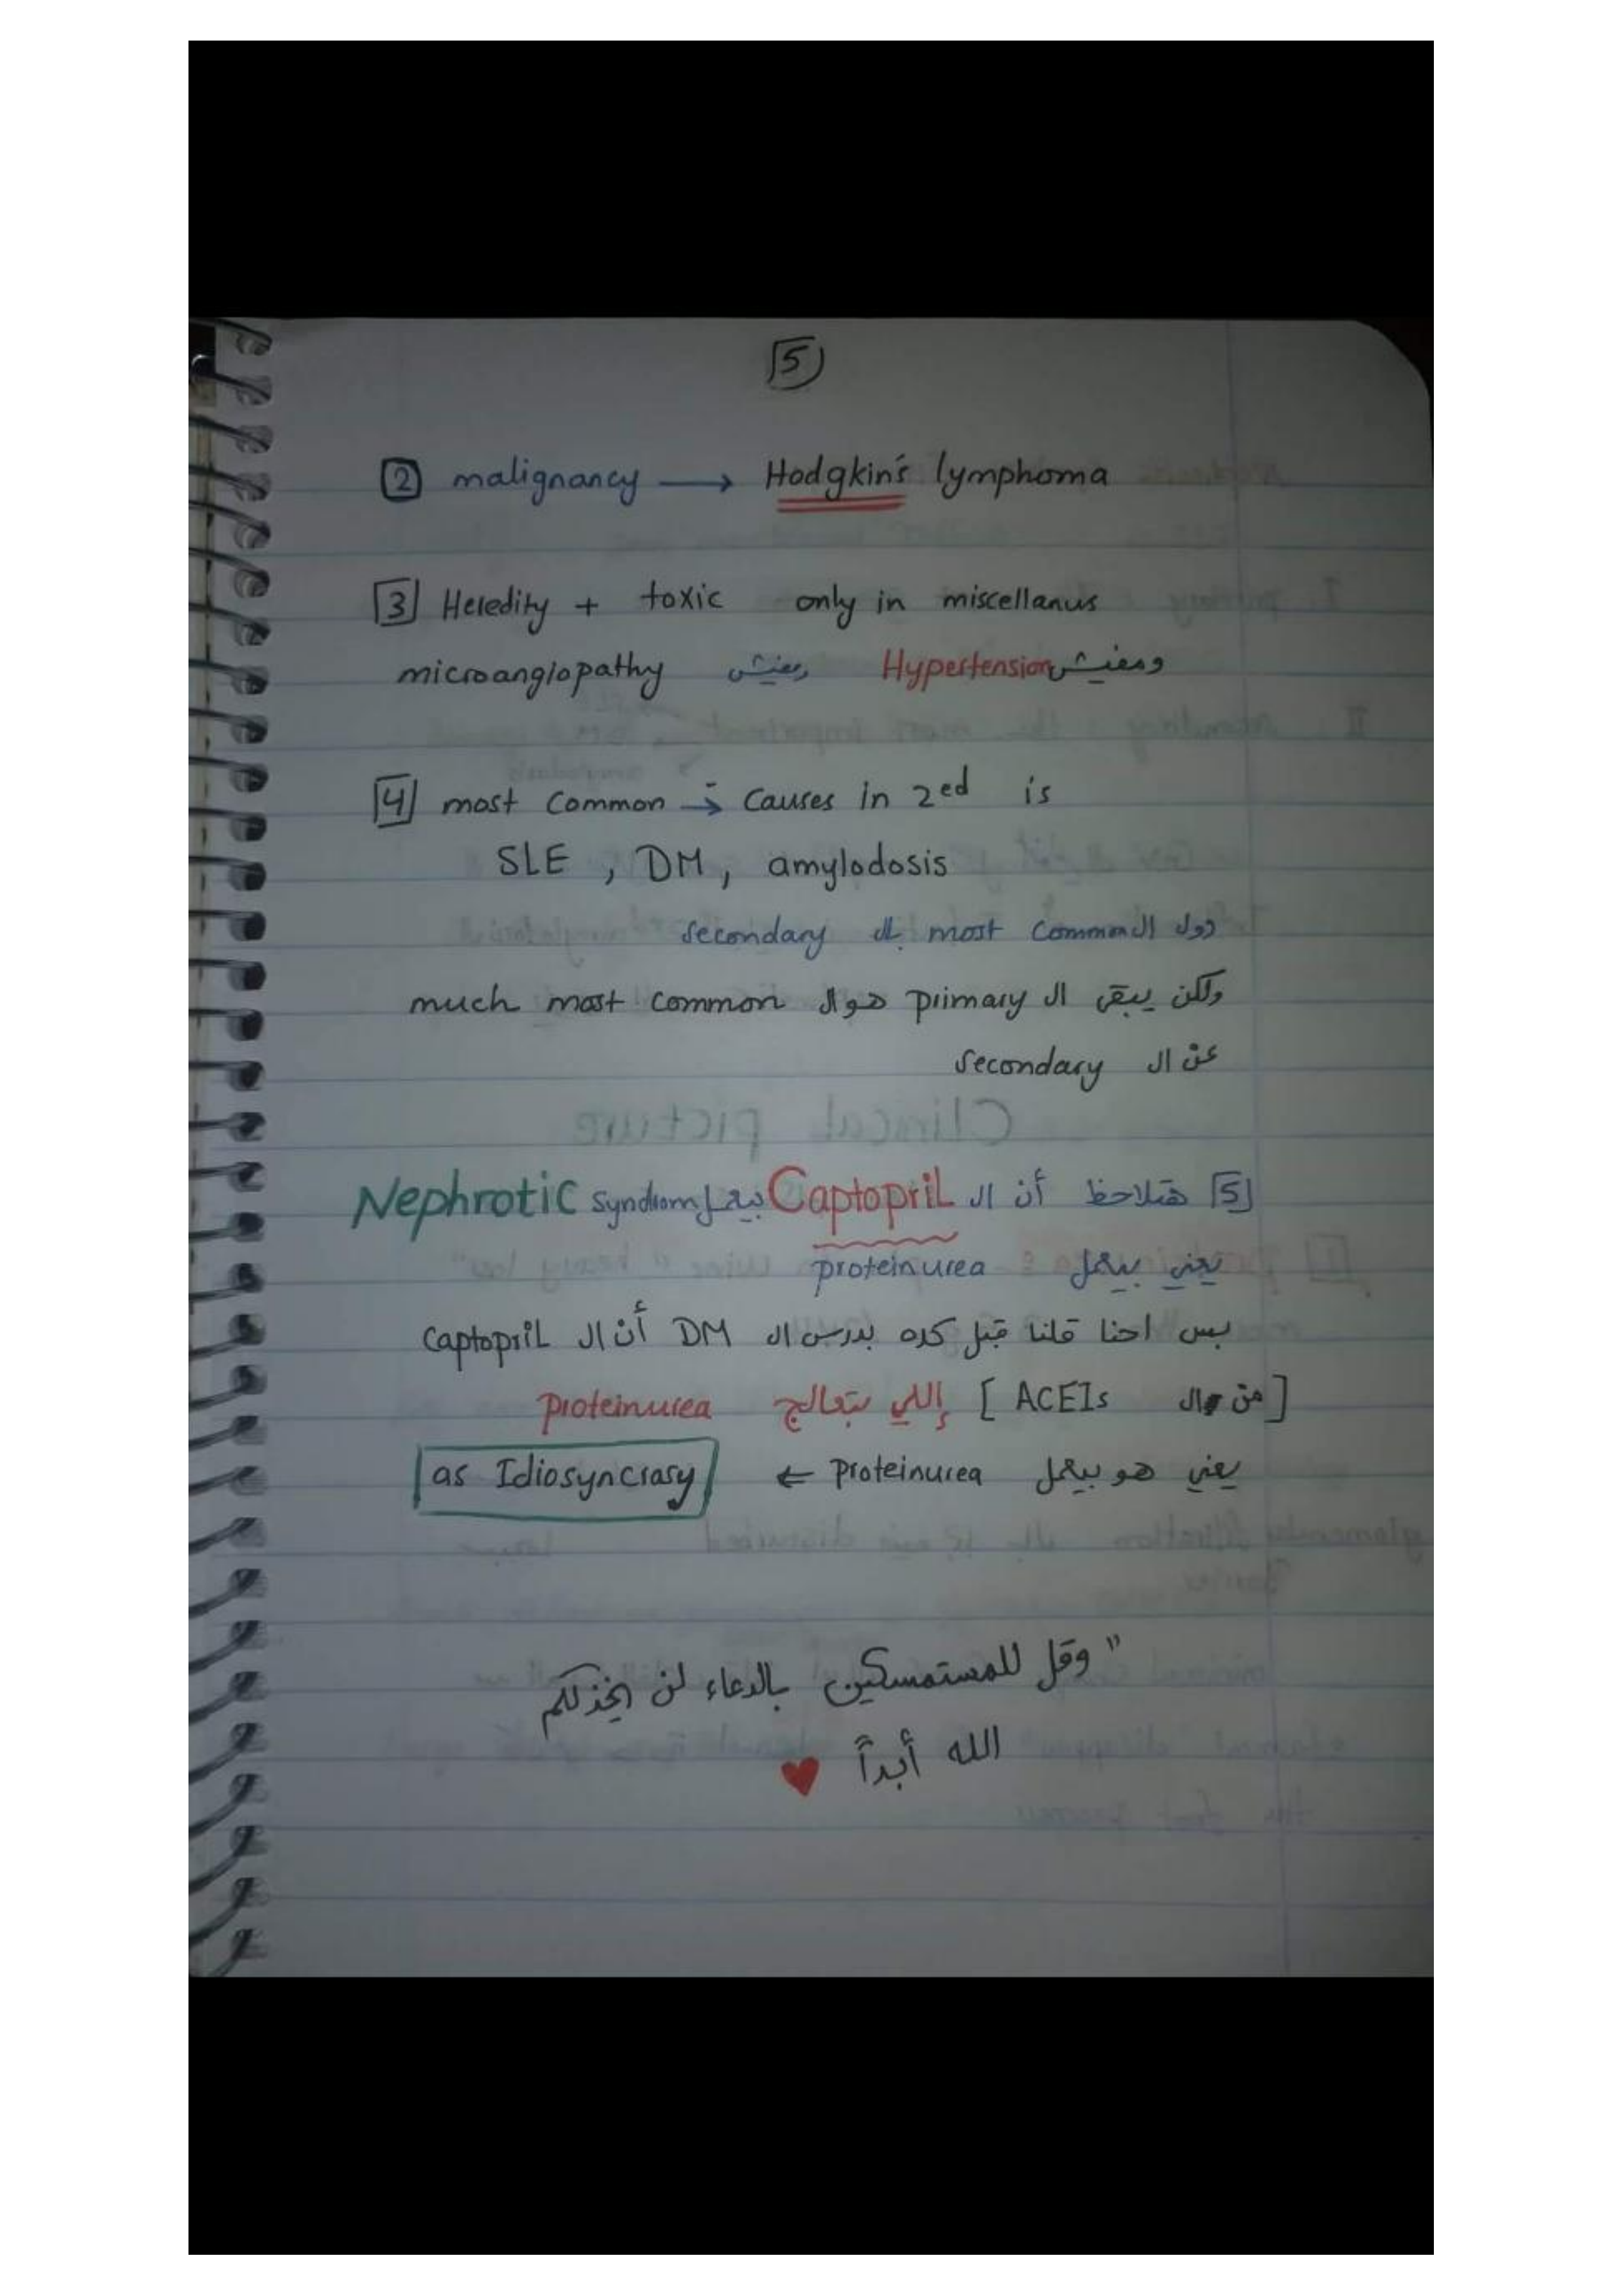 5
2 malignancy → Hodgkin's lymphoma
3 Heredity + toxic only in miscellanus
ومفيش Hypertension ومفيش microangiopathy
4 most common → causes in 2ed is
SLE , DM , amylodosis
دول ال most common بال secondary
ولكن يبقى ال primary هو ال much most common
عن ال secondary
5 هتلاحظ أن ال Captopril بيعمل Nephrotic syndrom
يعني بيعمل proteinurea
بس احنا قلنا قبل كده بدرس ال DM أن ال captopril
[من ال ACEIs] إللي بتعالج proteinurea
يعني هو بيعمل proteinurea ← as Idiosyncrasy
"وقل للمستمسكين بالدعاء لن يخذلكم
الله أبداً ♥